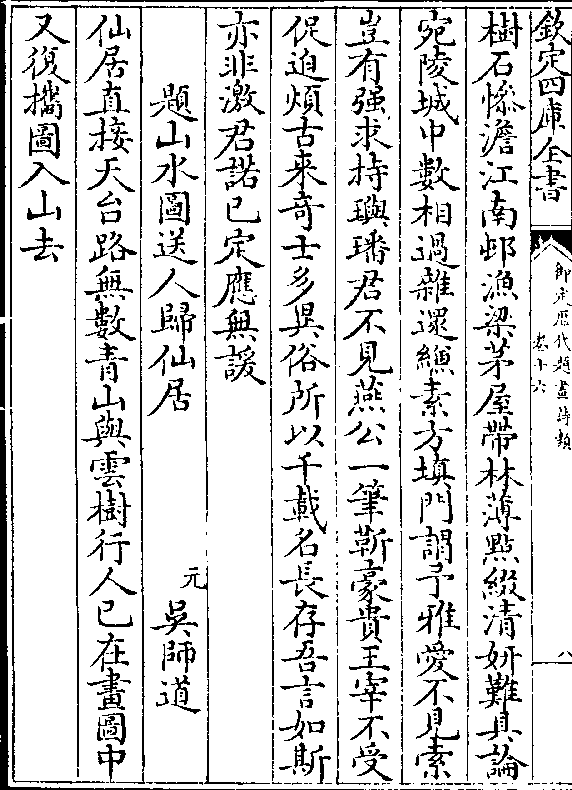 欽定四庫全書
御定歷代題畫詩類
卷十六
八
樹石慘澹江南邨漁梁茅屋帶林薄點綴清妍難具論
宛陵城中數相過雜遝縑素方填門謂予雅愛不見索
豈有强求持璵璠君不見燕公一筆靳豪貴王宰不受
促迫煩古來奇士多異俗所以千載名長存吾言如斯
亦非激君諾已定應無諼
題山水圖送人歸仙居
元 吳師道
仙居直接天台路無數青山與雲樹行人已在畫圖中
又復攜圖入山去